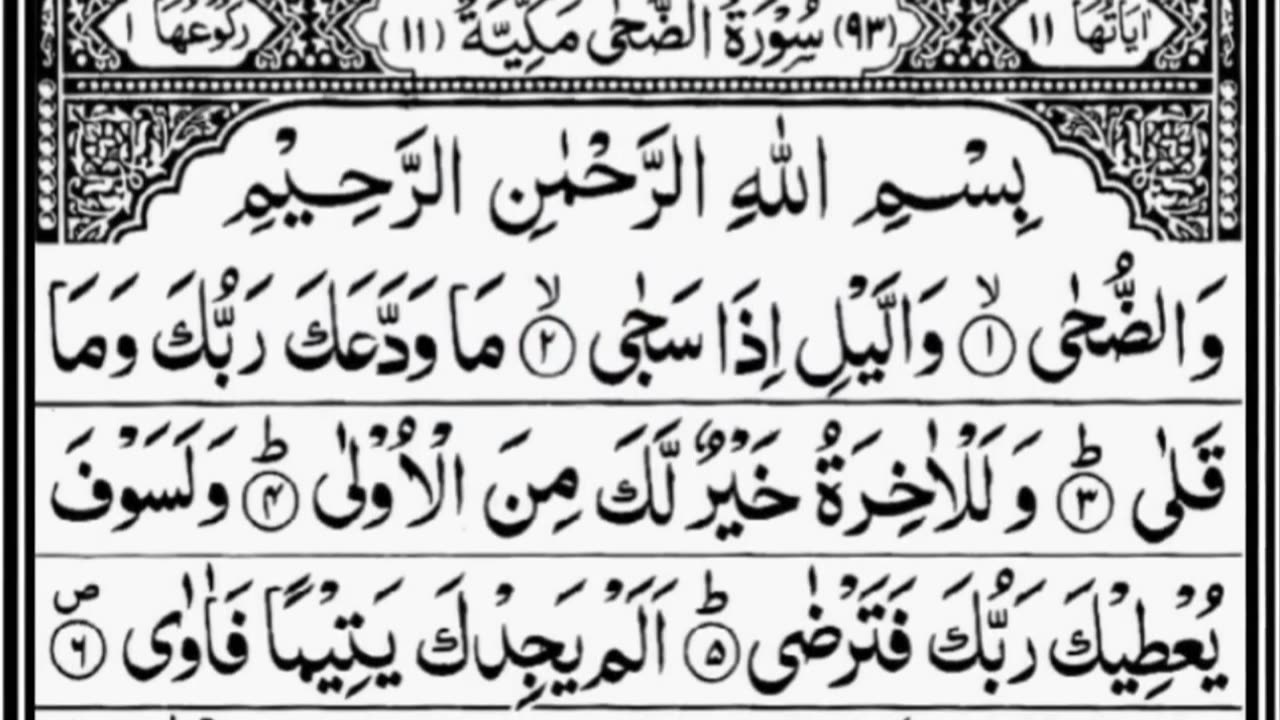 اٰيَاتُهَا ١١ (٩٣) سُوْرَةُ الضُّحٰى مَكِّيَّةٌ (١١) رُكُوْعُهَا ١
بِسْمِ اللّٰهِ الرَّحْمٰنِ الرَّحِيْمِ
وَالضُّحٰى ۙ﴿١﴾ وَالَّيْلِ اِذَا سَجٰى ۙ﴿٢﴾ مَا وَدَّعَكَ رَبُّكَ وَمَا
قَلٰى ؕ﴿٣﴾ وَ لَلْاٰخِرَةُ خَيْرٌ لَّكَ مِنَ الْاُوْلٰى ؕ﴿۴﴾ وَ لَسَوْفَ
يُعْطِيْكَ رَبُّكَ فَتَرْضٰى ؕ﴿۵﴾ اَلَمْ يَجِدْكَ يَتِيْمًا فَاٰوٰى ۪﴿٦﴾